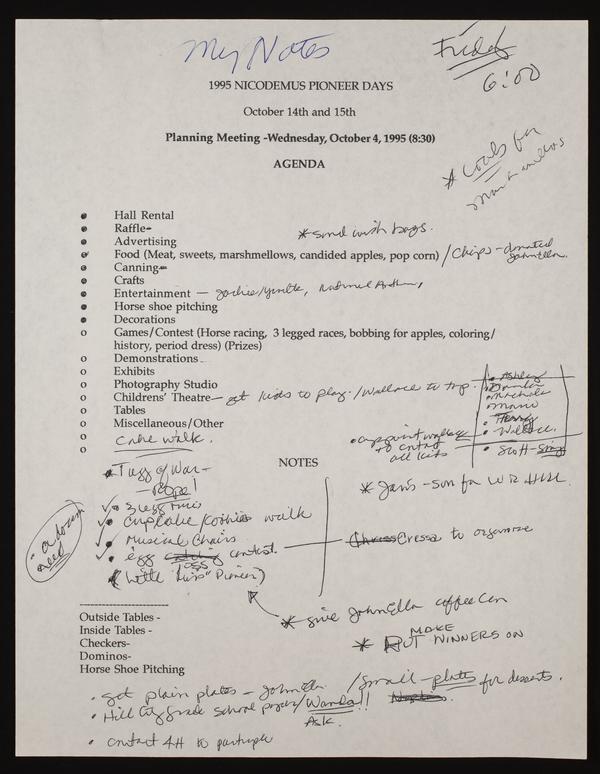 My Notes
Friday
6:00
1995 NICODEMUS PIONEER DAYS
October 14th and 15th
Planning Meeting -Wednesday, October 4, 1995 (8:30)
AGENDA
* Coals for
Hall Rental
Raffle-
Advertising
* sandwich bags.
Food (Meat, sweets, marshmellows, candided apples, pop corn) / Chips - donated JohnElla.
Canning-
Crafts
Entertainment —
Horse shoe pitching
Decorations
o Games/Contest (Horse racing, 3 legged races, bobbing for apples, coloring/
history, period dress) (Prizes)
o Demonstrations
o Exhibits
o Photography Studio
o Childrens' Theatre — get kids to play. / Wallace to
o Tables
o Miscellaneous/Other
o Cake walk.
o
• Ashley
• Wallace.
• Scott -
• appoint
all kids
NOTES
• Tugg of War -
- Rope!
• 3 legg race
• cupcake/cookies walk
• Musical Chairs
• egg toss contest.
(Little "Miss" Pioneer)
need
* Jan's - son for
Cressa to organize
* give JohnElla coffee can
* MAKE WINNERS ON
Outside Tables -
Inside Tables -
Checkers-
Dominos-
Horse Shoe Pitching
• get plain plates - JohnElla / Small - platts for desserts.
• Hill City grade school paper / Wanda!!
Ask.
• contact 4H to participate